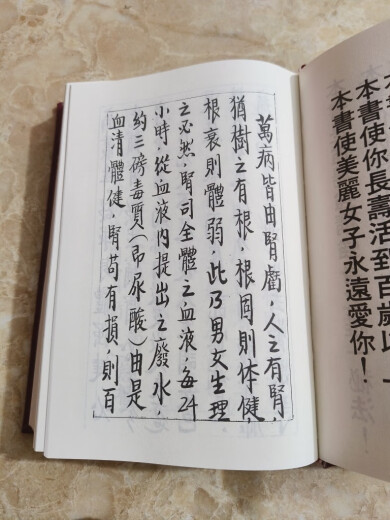 本書使你長壽活到百歲以
本書使美麗女子永遠愛你！
萬病皆由腎虧，人之有腎，
猶樹之有根，根固則体健，
根衰則體弱，此乃男女生理
之必然，腎司全體之血液，每24
小時從血液內提出之廢水，
約三磅毒質（即尿酸）由是
血清體健，腎苟有損，則百